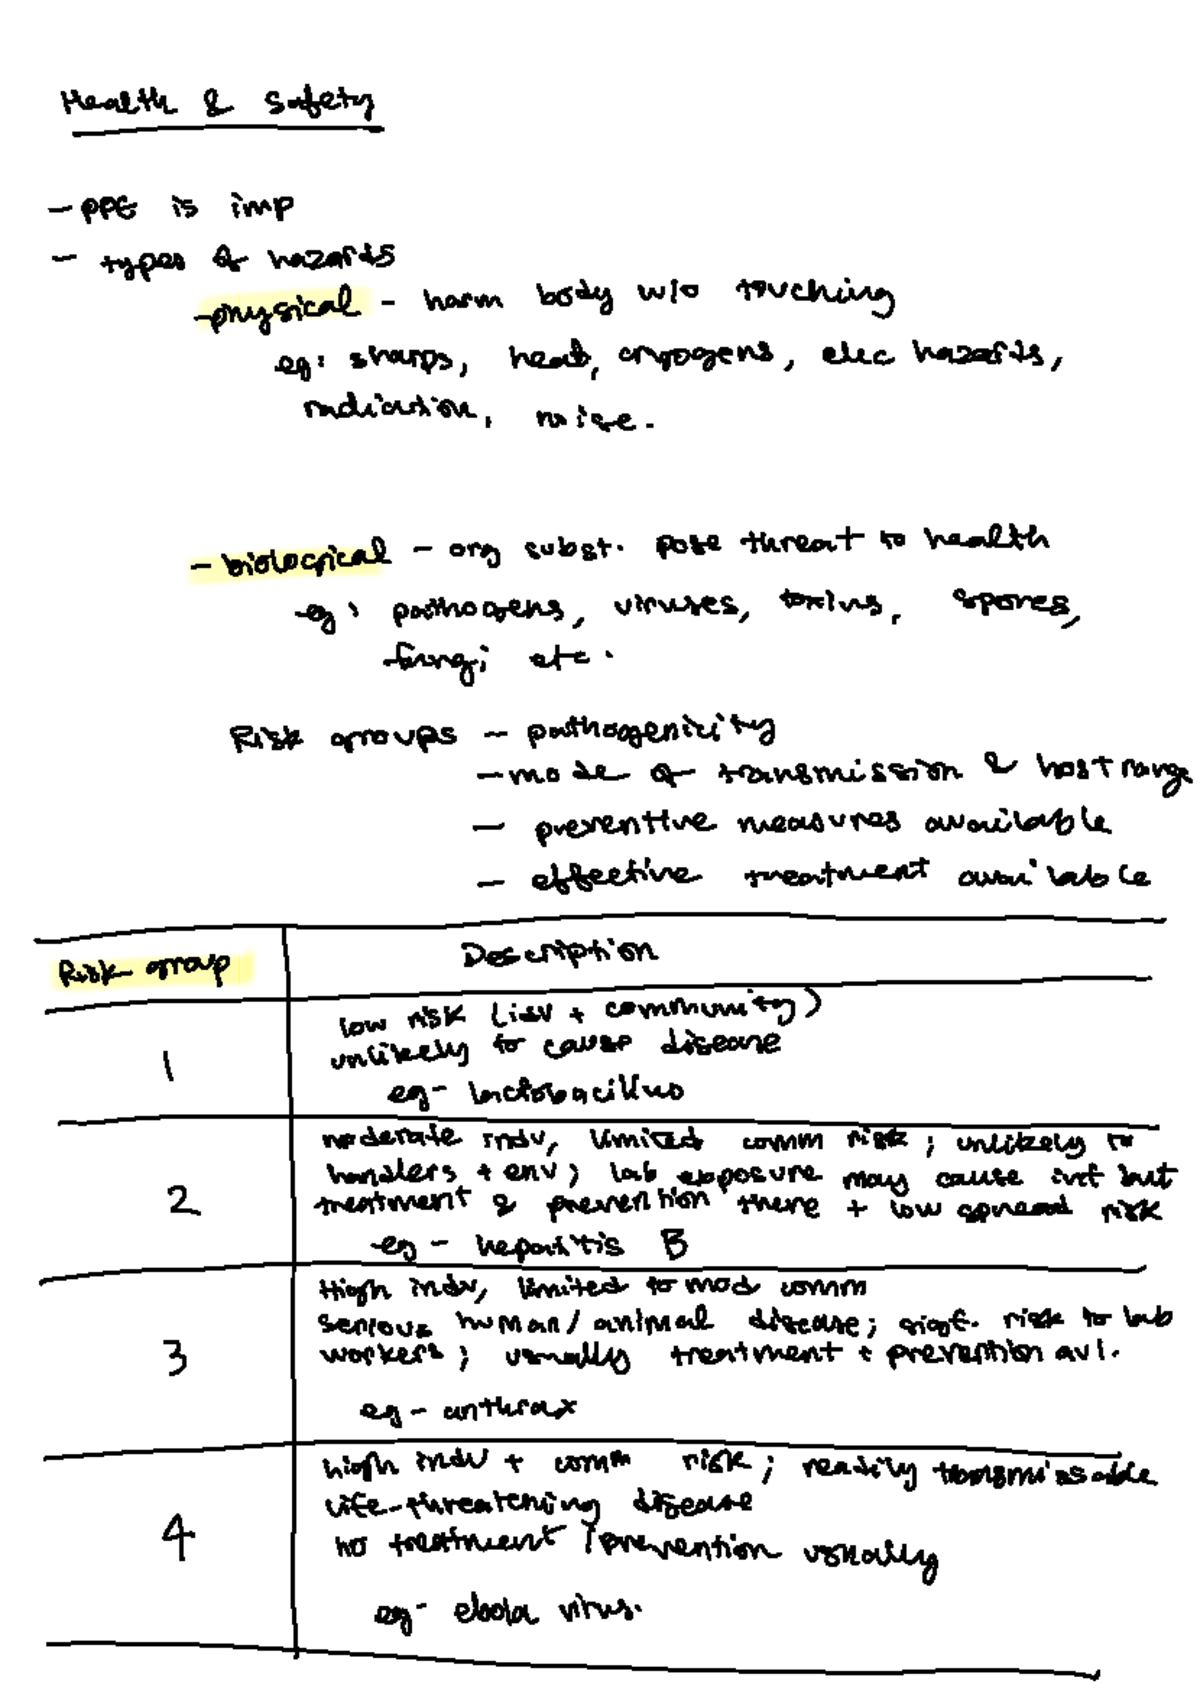 Health & Safety
- PPE is imp
- types of hazards
- physical - harm body w/o touching
eg: sharps, heat, cryogens, elec hazards,
radiation, noise.
- biological - org subst. pose threat to health
eg: pathogens, viruses, toxins, spores,
fungi etc.
Risk groups - pathogenicity
- mode of transmission & host range
- preventive measures available
- effective treatment available
Risk group Description
1
low risk (idv + community)
unlikely to cause disease
eg - lactobacillus
2
moderate indv, limited comm risk; unlikely to
handlers + env; lab exposure may cause inf but
treatment & prevention there + low spread risk
eg - hepatitis B
3
High indv, limited to mod comm
serious human/animal disease; sigf. risk to lab
workers; usually treatment + prevention avl.
eg - anthrax
4
high indv + comm risk; readily transmissable
life-threatening disease
no treatment/prevention usually
eg - ebola virus.